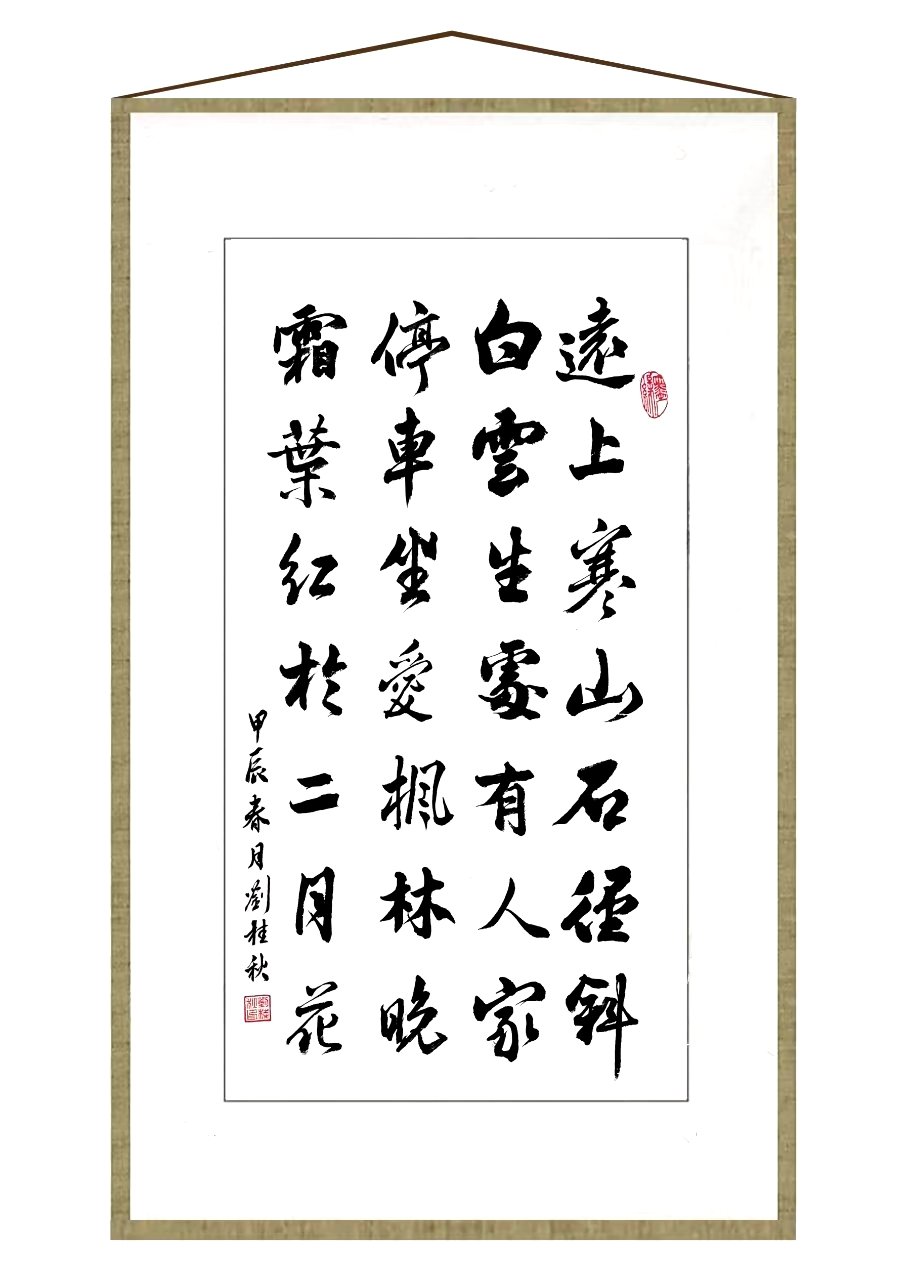 遠上寒山石徑斜
白雲生處有人家
停車坐愛楓林晚
霜葉紅於二月花
甲辰春月劉桂秋